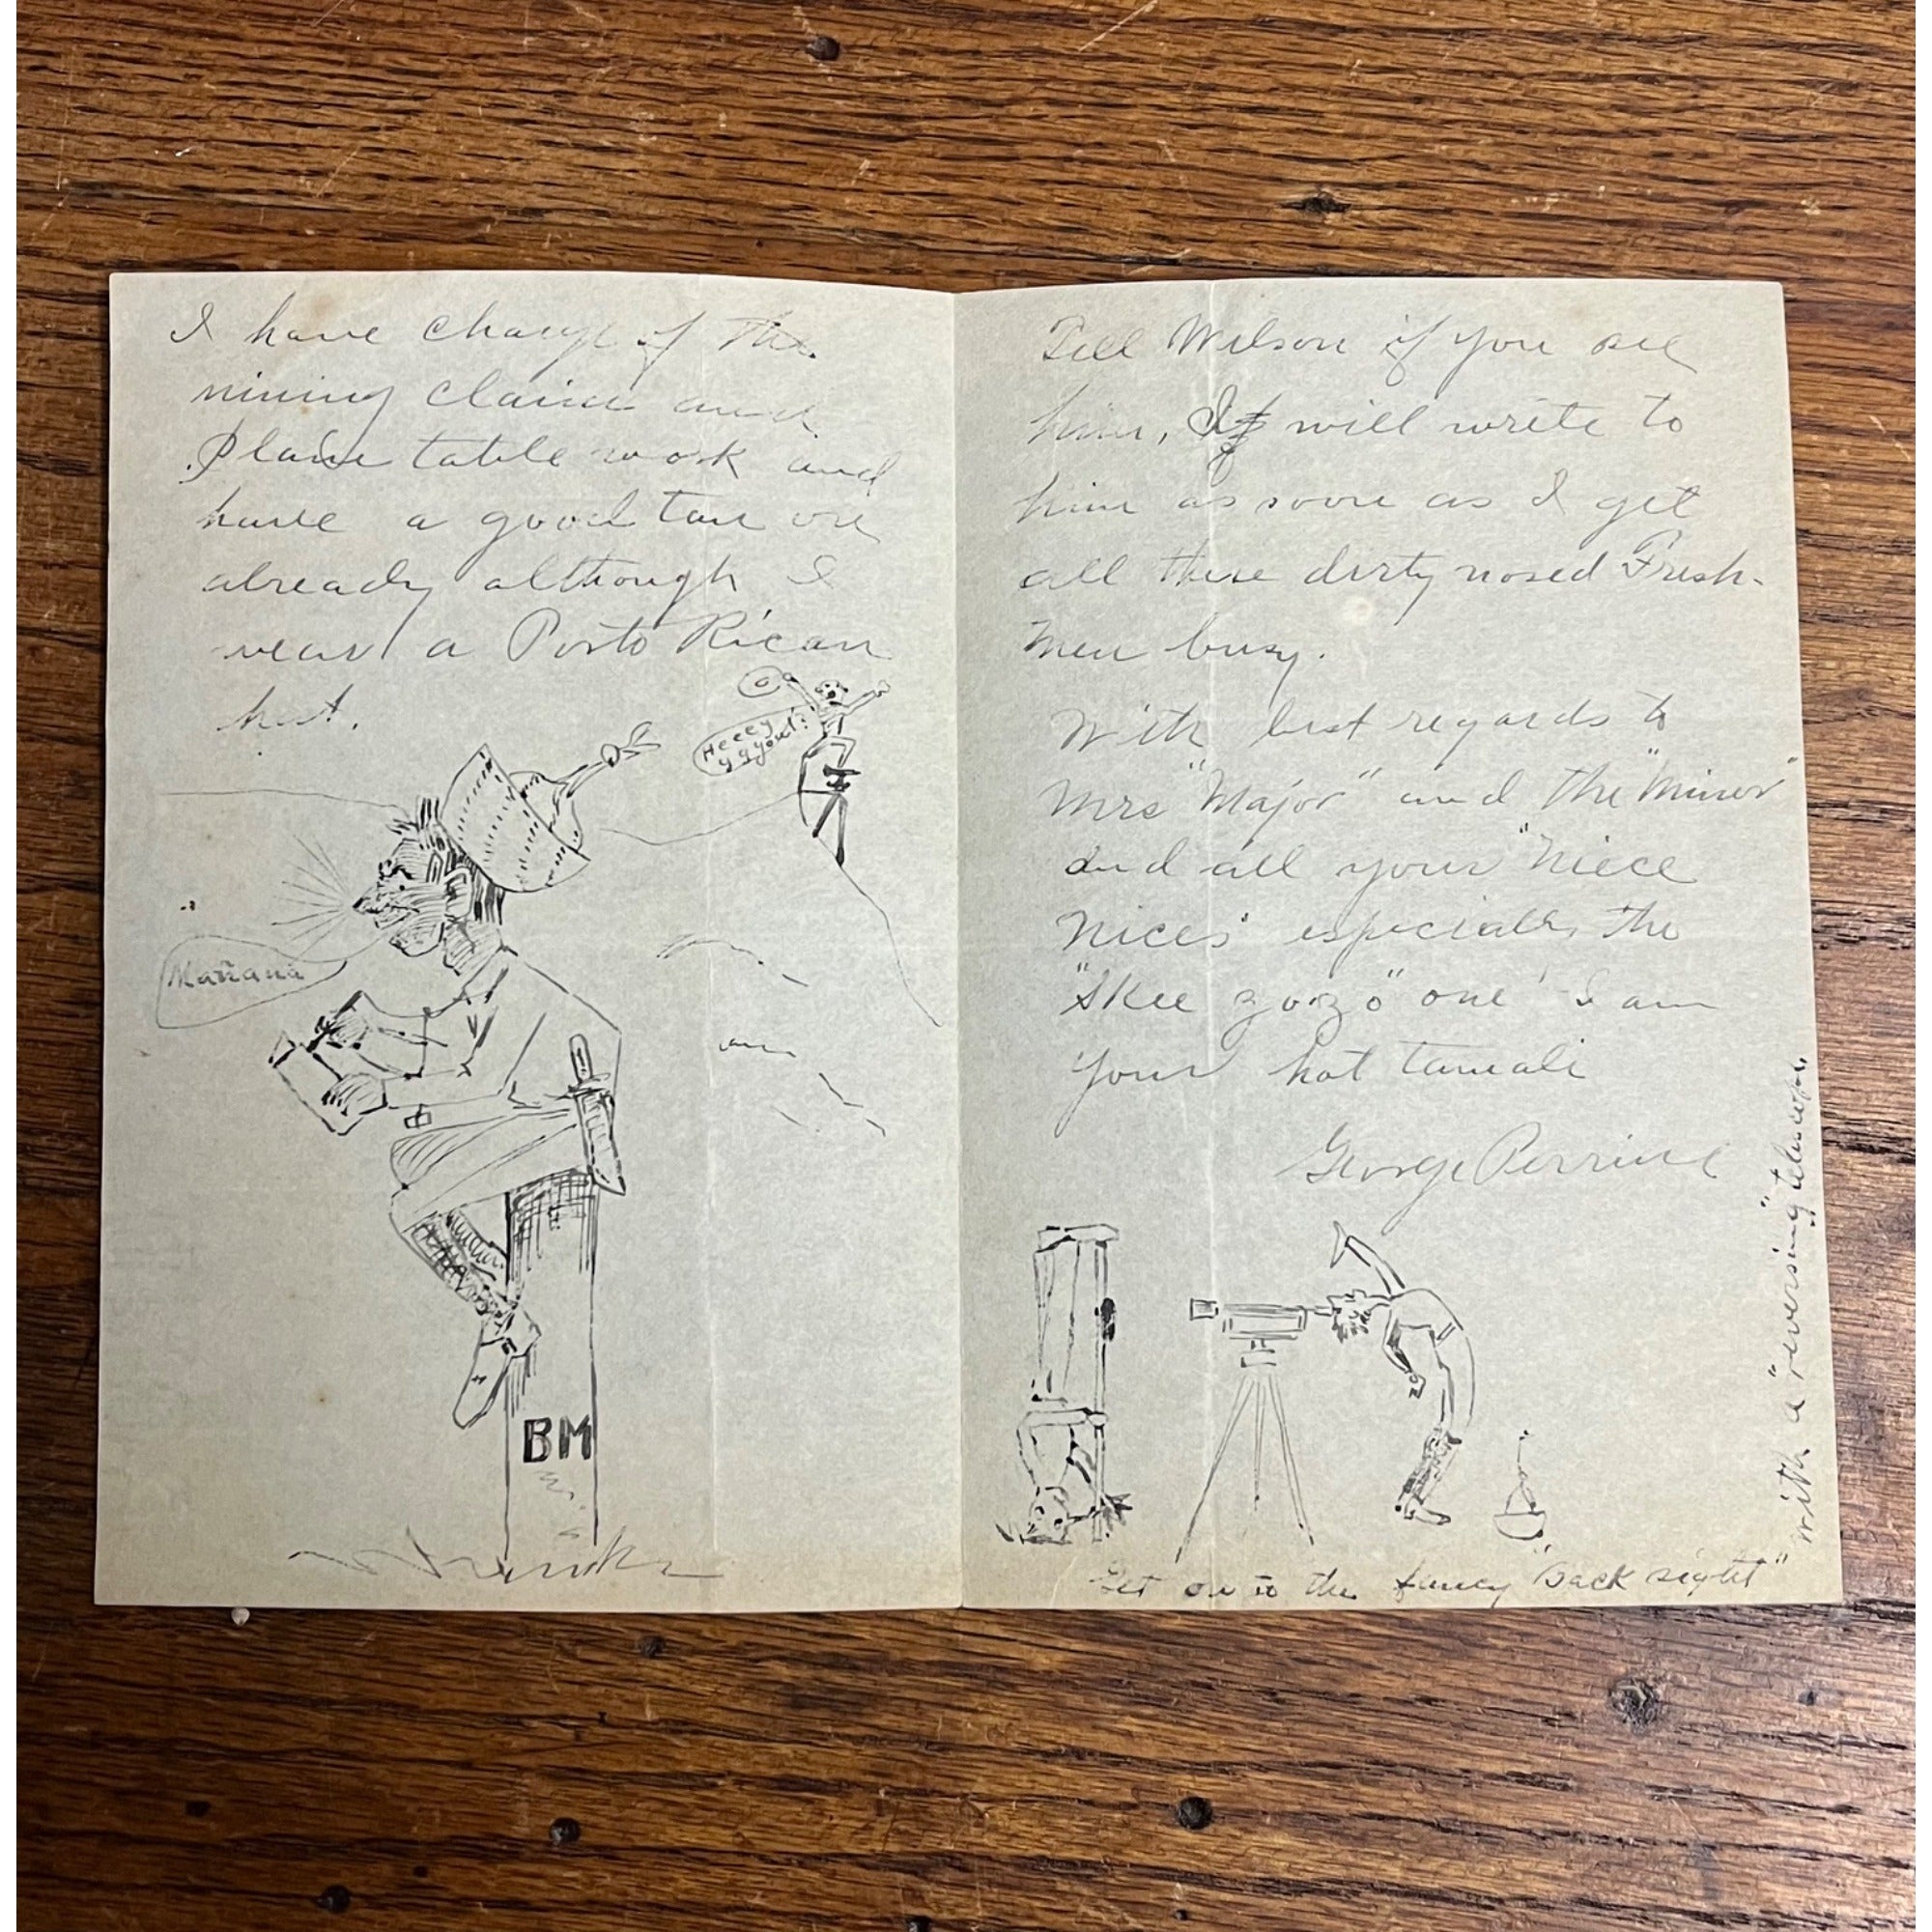 I have charge of the
mining claim and
Plane table work and
have a good tan on
already although I
wear a Porto Rican
hat.
Heeey
yyyou!!
Mañana
BM
Tell Wilson if you see
him, I will write to
him as soon as I get
all these dirty nosed Fresh-
men busy.
With best regards to
Mrs "Major" and the "Minor"
and all your "Niece
Nices" especially the
"Skee gozo" one I am
your hot tamali
George Perrine
Get on to the fancy "Back sight"
with a "reversing" telescope